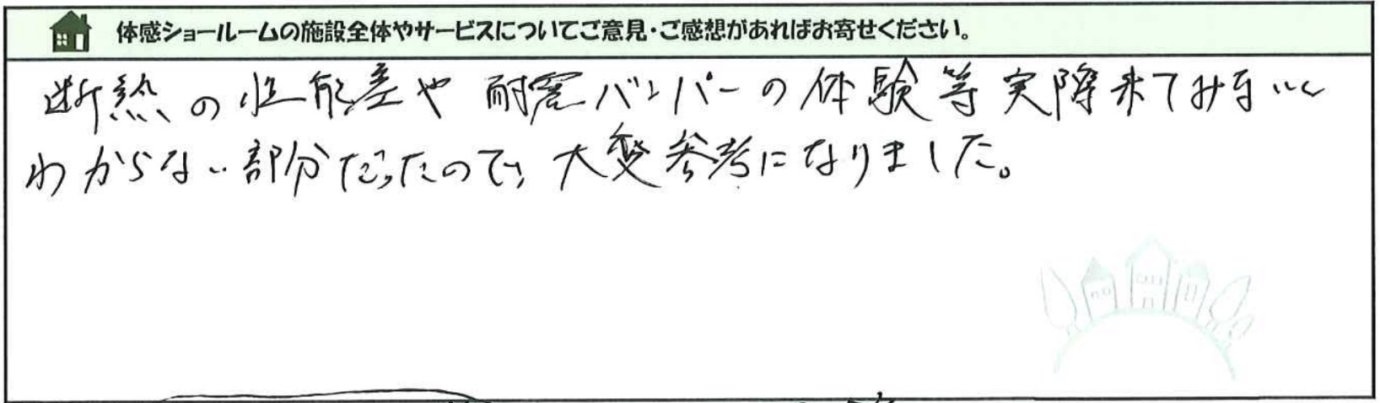 体感ショールームの施設全体やサービスについてご意見・ご感想があればお寄せください。
断熱の性能差や耐震バンパーの体験等実際来てみないと
わからない部分だったので、大変参考になりました。